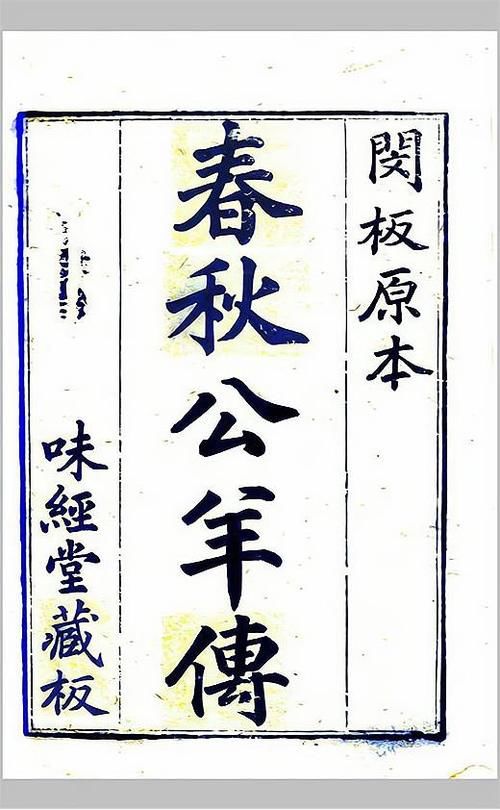 閔板原本
春秋公羊傳
味經堂藏板